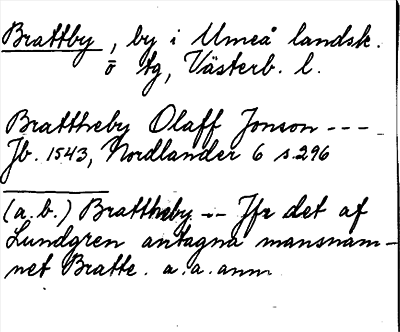 Brattby, by i Umeå landsk.
o tg, Västerb. l.
Brattheby Olaff Jonson ----
Jb. 1543, Nordlander 6 s. 296
(a. b.) Brattheby -- Jfr det af
Lundgren antagna mansnam-
net Bratte. a. a. anm